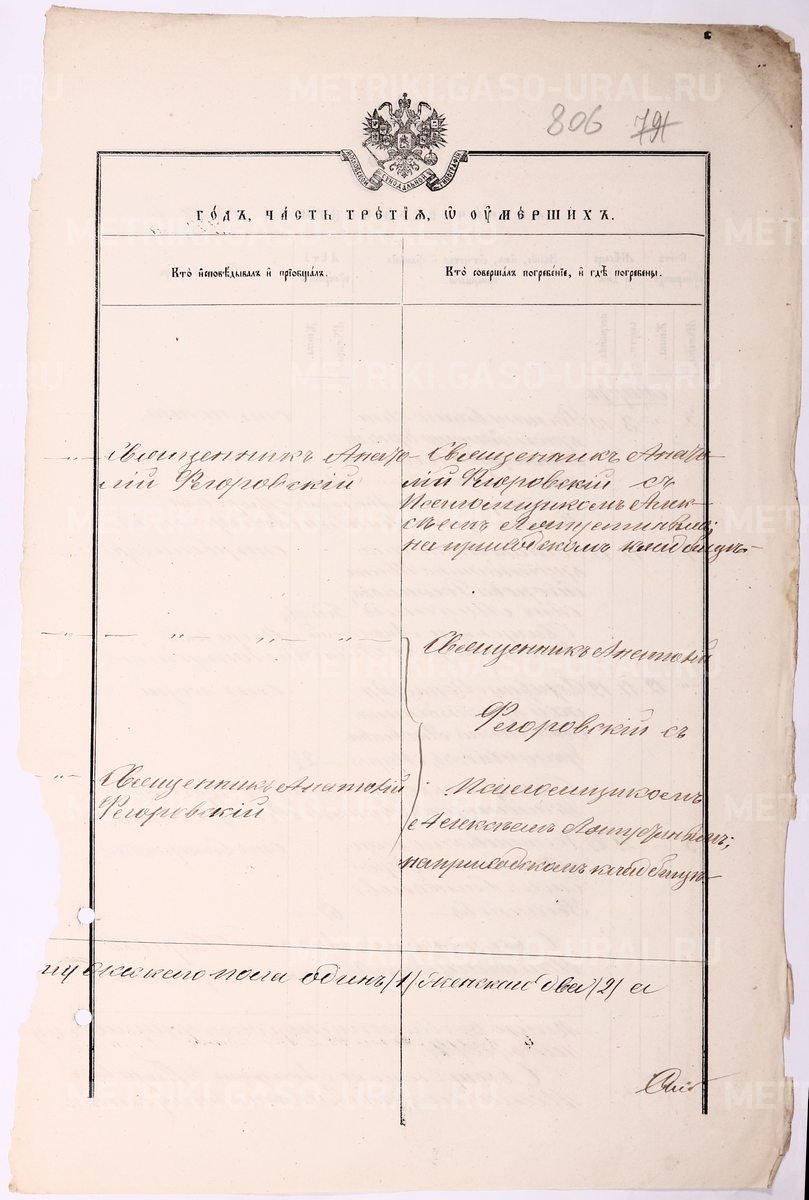 806 791
МОСКОВСКОЙ СѴНОДАЛЬНОЙ ТИПОГРАФІИ
го́дъ, ча́сть тре́тїѧ, ѡ҆ ᲂу҆ме́ршихъ.
Кто̀ и҆сповѣ́дывалъ и҆ прїѡбща́лъ.
Кто̀ соверша́лъ погребе́нїе, и҆ гдѣ̀ погребе́ны.
Священникъ Анато-
лій Ѳедоровскій
Священникъ Анато-
лій Ѳедоровскій съ
Псаломщикомъ Алек-
сѣемъ
на приходскомъ кладбищѣ
Священникъ Анатолій
Ѳедоровскій съ
Псаломщикомъ
Алексѣемъ
на приходскомъ кладбищѣ
Священникъ Анатолій
Ѳедоровскій
мужескаго пола одинъ (1) женскаго два (2) а
METRIKI.GASO-URAL.RU